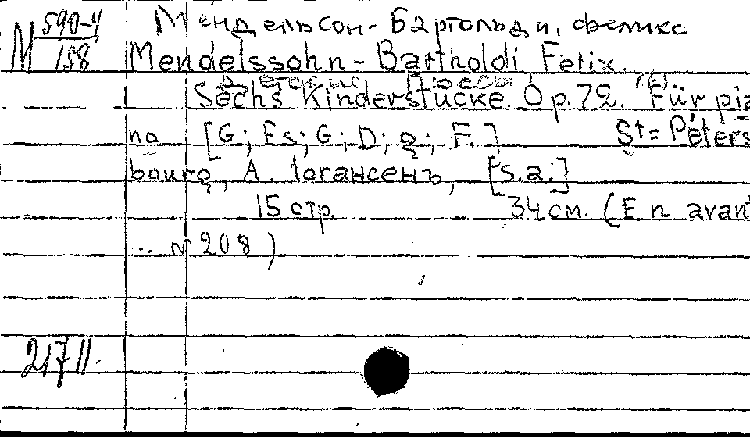 М 590-4/158
Мендельсон-Бартольди, Феликс
Mendelssohn-Bartholdi Felix.
Детские Пьесы (6)
Sechs Kinderstücke Op. 72. Für pia
no [G; Es; G; D; g; F.] St=Peters
bourg, А. Іогансенъ, [s.a.]
15 стр. 34 см. (En avant
... N 208)
217 II.